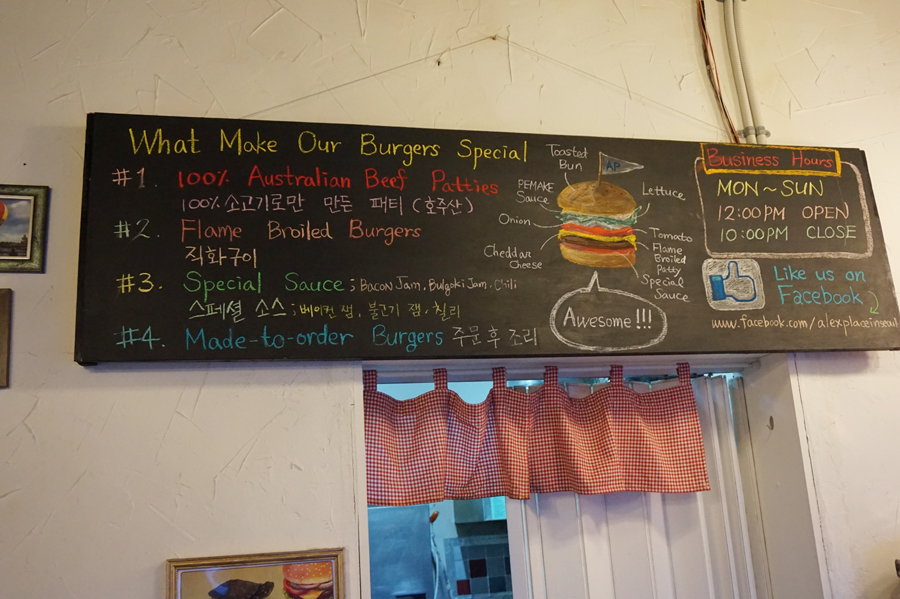 What Make Our Burgers Special
#1. 100% Australian Beef Patties
100% 소고기로만 만든 패티 (호주산)
#2. Flame Broiled Burgers
직화구이
#3. Special Sauce ; Bacon Jam, Bulgoki Jam, Chili
스페셜 소스 ; 베이컨 잼, 불고기 잼, 칠리
#4. Made-to-order Burgers 주문 후 조리
Toasted
Bun
AP
PEMAKE
Sauce
Lettuce
Onion
Tomato
Cheddar
Cheese
Flame
Broiled
Patty
Special
Sauce
Awesome!!!
Business Hours
MON~SUN
12:00PM OPEN
10:00PM CLOSE
Like us on
Facebook
www.facebook.com/alexplaceinseoul